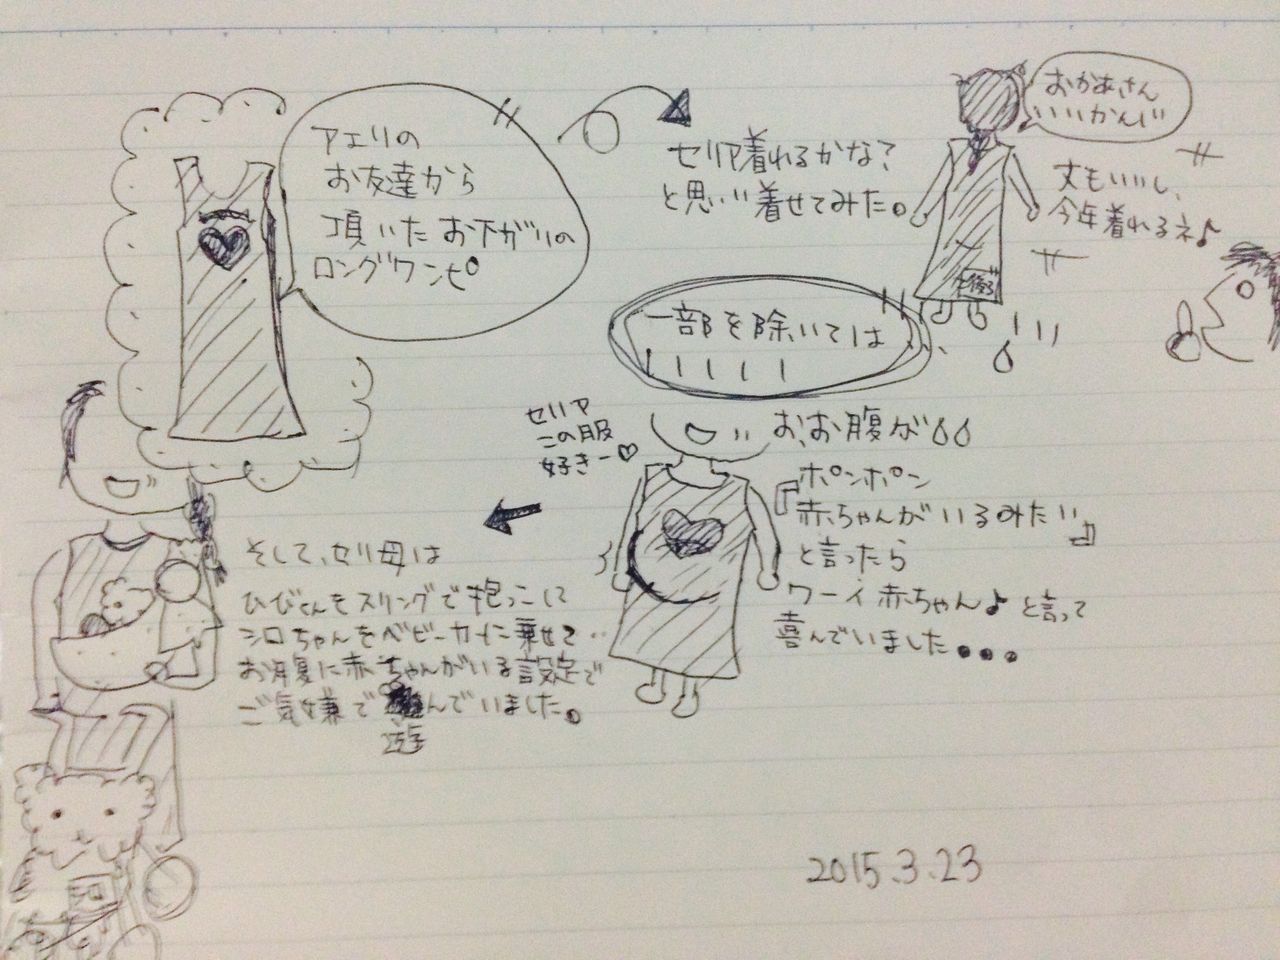 アエリの
お友達から
頂いたお下がりの
ロングワンピ
セリア着れるかな?
と思い着せてみた。
おかあさん
いいかんじ
丈もいいし、
今年着れるネ♪
後ろ
一部を除いては
セリア
この服
好きー♡
お、お腹が
『ポンポン
赤ちゃんがいるみたい』
と言ったら
ワーイ赤ちゃん♪と言って
喜んでいました...
そして、セリ母は
ひびくんをスリングで抱っこして
シロちゃんをベビーカーに乗せて‥
お腹に赤ちゃんがいる設定で
ご気嫌で遊んでいました。
2015.3.23